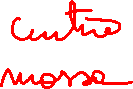 centro
mossa